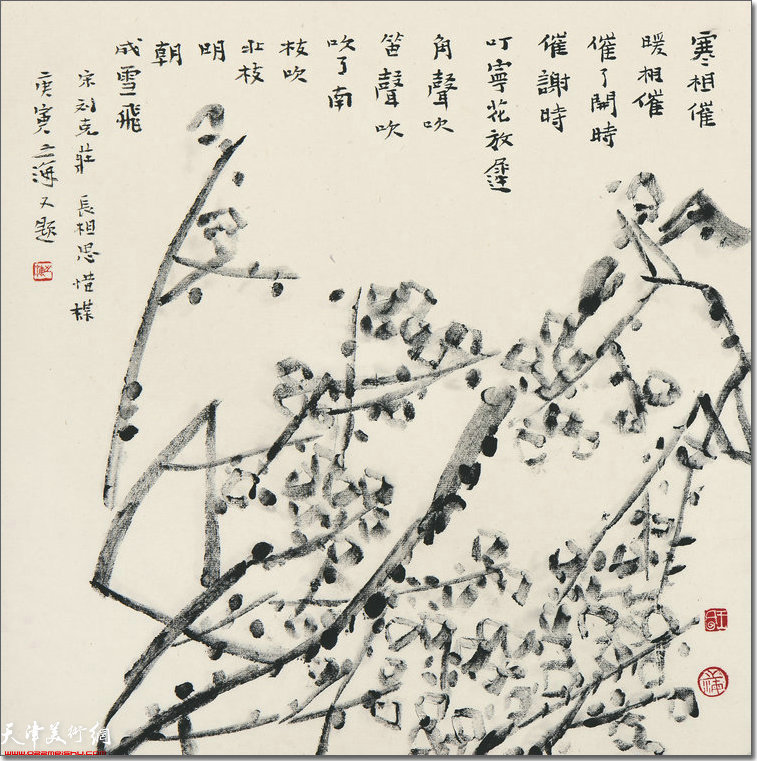 寒相催
暖相催
催了開時
催謝時
叮寧花放遲
角聲吹
笛聲吹
吹了南
枝吹
北枝
明
朝
成雪飛
宋刘克莊 長相思 惜楳
庚寅之海又题
天津美術網
www.022meishu.com